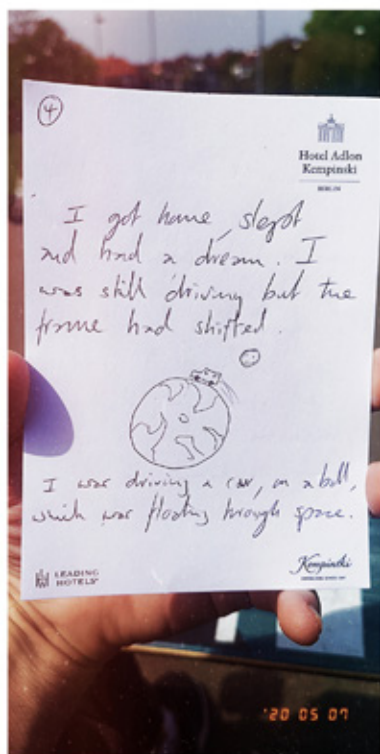 4
Hotel Adlon
Kempinski
BERLIN
I got home, slept
and had a dream. I
was still driving but the
frame had shifted.
I was driving a car, on a ball,
which was floating through space.
LEADING
HOTELS
Kempinski
'20 05 07